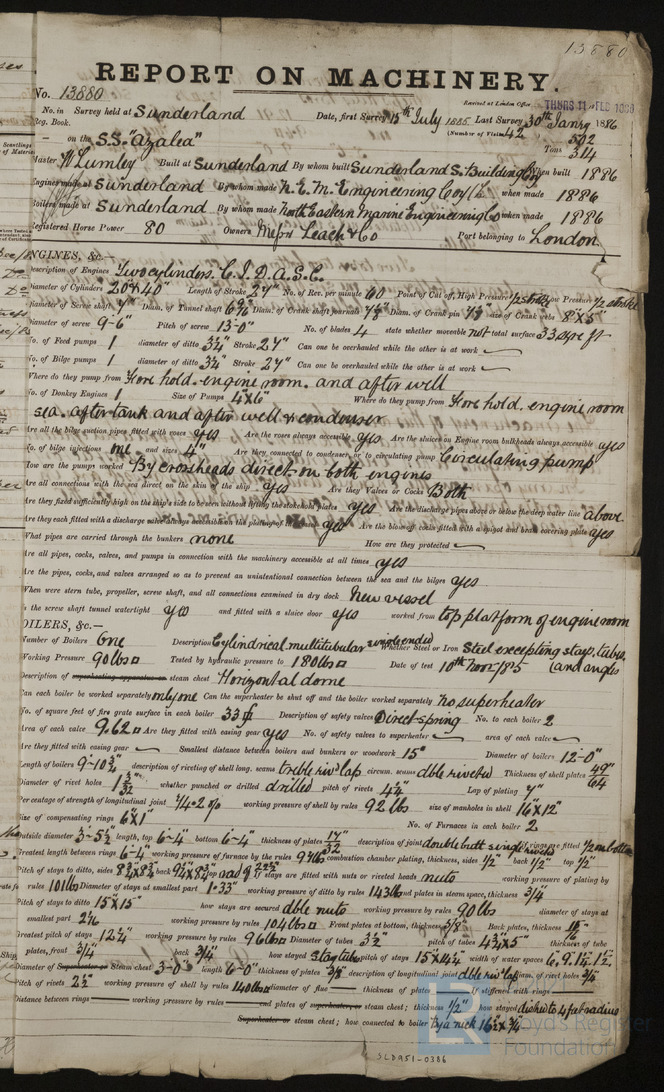 13880
REPORT ON MACHINERY.
No. 13880 Received at London Office THURS 11 FEB
No. in Survey held at Sunderland Date, first Survey 15th July 1885 Last Survey 30th Janry 1886
Reg. Book. (Number of Visits 42
on the S.S. "Azalea" Tons 502 314
Master W Lumley Built at Sunderland By whom built Sunderland S. Building Coy When built 1886
Engines made at Sunderland By whom made N. E. M. Engineering Coy Ld when made 1886
Boilers made at Sunderland By whom made North Eastern Marine Engineering Co when made 1886
Registered Horse Power 80 Owners Messrs Leach & Co Port belonging to London
ENGINES, &c.—
Description of Engines Two cylinders. C. I. D. A. S. C.
Diameter of Cylinders 20" x 40" Length of Stroke 27" No. of Rev. per minute 60 Point of Cut off, High Pressure 1/2 stroke Low Pressure 1/2 stroke
Diameter of Screw shaft 7" Diam. of Tunnel shaft Diam. of Crank shaft journals Diam. of Crank pin size of Crank webs 8" x 5"
Diameter of screw 9-6" Pitch of screw 13-0" No. of blades 4 state whether moveable not total surface 33 sqre ft
No. of Feed pumps 1 diameter of ditto 3 1/4" Stroke 27" Can one be overhauled while the other is at work
No. of Bilge pumps 1 diameter of ditto 3 1/4" Stroke 27" Can one be overhauled while the other is at work
Where do they pump from Fore hold. engine room. and after well
No. of Donkey Engines 1 Size of Pumps 4" x 6" Where do they pump from Fore hold. engine room
sea. after tank and after well & condenser
Are all the bilge suction pipes fitted with roses yes Are the roses always accessible yes Are the sluices on Engine room bulkheads always accessible yes
No. of bilge injections one and sizes 4" Are they connected to condenser, or to circulating pump Circulating pump
How are the pumps worked By crossheads direct on both engines
Are all connections with the sea direct on the skin of the ship yes Are they Valves or Cocks Both
Are they fixed sufficiently high on the ship's side to be seen without lifting the stokehole plates yes Are the discharge pipes above or below the deep water line above
Are they each fitted with a discharge valve always accessible on the plating of the vessel yes Are the blow off cocks fitted with a spigot and brass covering plate yes
What pipes are carried through the bunkers none How are they protected
Are all pipes, cocks, valves, and pumps in connection with the machinery accessible at all times yes
Are the pipes, cocks, and valves arranged so as to prevent an unintentional connection between the sea and the bilges yes
When were stern tube, propeller, screw shaft, and all connections examined in dry dock New vessel
Is the screw shaft tunnel watertight yes and fitted with a sluice door yes worked from top platform of engine room
BOILERS, &c.—
Number of Boilers One Description Cylindrical multitubular single ended Whether Steel or Iron Steel excepting stays, tubes,
Working Pressure 90 lbs Tested by hydraulic pressure to 180 lbs Date of test 10th Novr /85 (and angles
Description of superheating apparatus or steam chest Horizontal dome
Can each boiler be worked separately only one Can the superheater be shut off and the boiler worked separately no superheater
No. of square feet of fire grate surface in each boiler 33 Description of safety valves Direct spring No. to each boiler 2
Area of each valve 9.62 Are they fitted with easing gear yes No. of safety valves to superheater area of each valve
Are they fitted with easing gear Smallest distance between boilers and bunkers or woodwork 15" Diameter of boilers 12-0"
Length of boilers 9-10 description of riveting of shell long. seams treble riv lap circum. seams dble riveted Thickness of shell plates 49/64"
Diameter of rivet holes 1 3/32" whether punched or drilled drilled pitch of rivets 4 1/4" Lap of plating 7"
Per centage of strength of longitudinal joint 74.2% working pressure of shell by rules 92 lbs size of manholes in shell 16" x 12"
Size of compensating rings 6" x 1" No. of Furnaces in each boiler 2
Outside diameter 3-5 length, top 6-4" bottom 6-4" thickness of plates 17/32" description of joint double butt single rivd if rings are fitted
Greatest length between rings 6-4" working pressure of furnace by the rules combustion chamber plating, thickness, sides 1/2" back 1/2" top 1/2"
Pitch of stays to ditto, sides back top If stays are fitted with nuts or riveted heads nuts working pressure of plating by
rules 101 lbs Diameter of stays at smallest part 1.33" working pressure of ditto by rules 143 lbs end plates in steam space, thickness 3/4"
Pitch of stays to ditto 15" x 15" how stays are secured dble nuts working pressure by rules 90 lbs diameter of stays at
smallest part working pressure by rules 104 lbs Front plates at bottom, thickness 5/8" Back plates, thickness
Greatest pitch of stays 12 1/4" working pressure by rules 96 lbs Diameter of tubes 3 1/2" pitch of tubes 4 3/4" x 5" thickness of tube
plates, front 3/4" back 3/4" how stayed stay tubes pitch of stays width of water spaces
Diameter of Superheater or Steam chest 3-0" length 6-0" thickness of plates 3/8" description of longitudinal joint dble riv lap diam. of rivet holes
Pitch of rivets 2 1/2" working pressure of shell by rules 140 lbs diameter of flue thickness of plates If stiffened with rings
Distance between rings working pressure by rules end plates of superheater, or steam chest; thickness 1/2" how stayed dished to 4 feet radius
Superheater or steam chest; how connected to boiler By a neck
SLD951-0386
LR
Lloyd's Register
Foundation